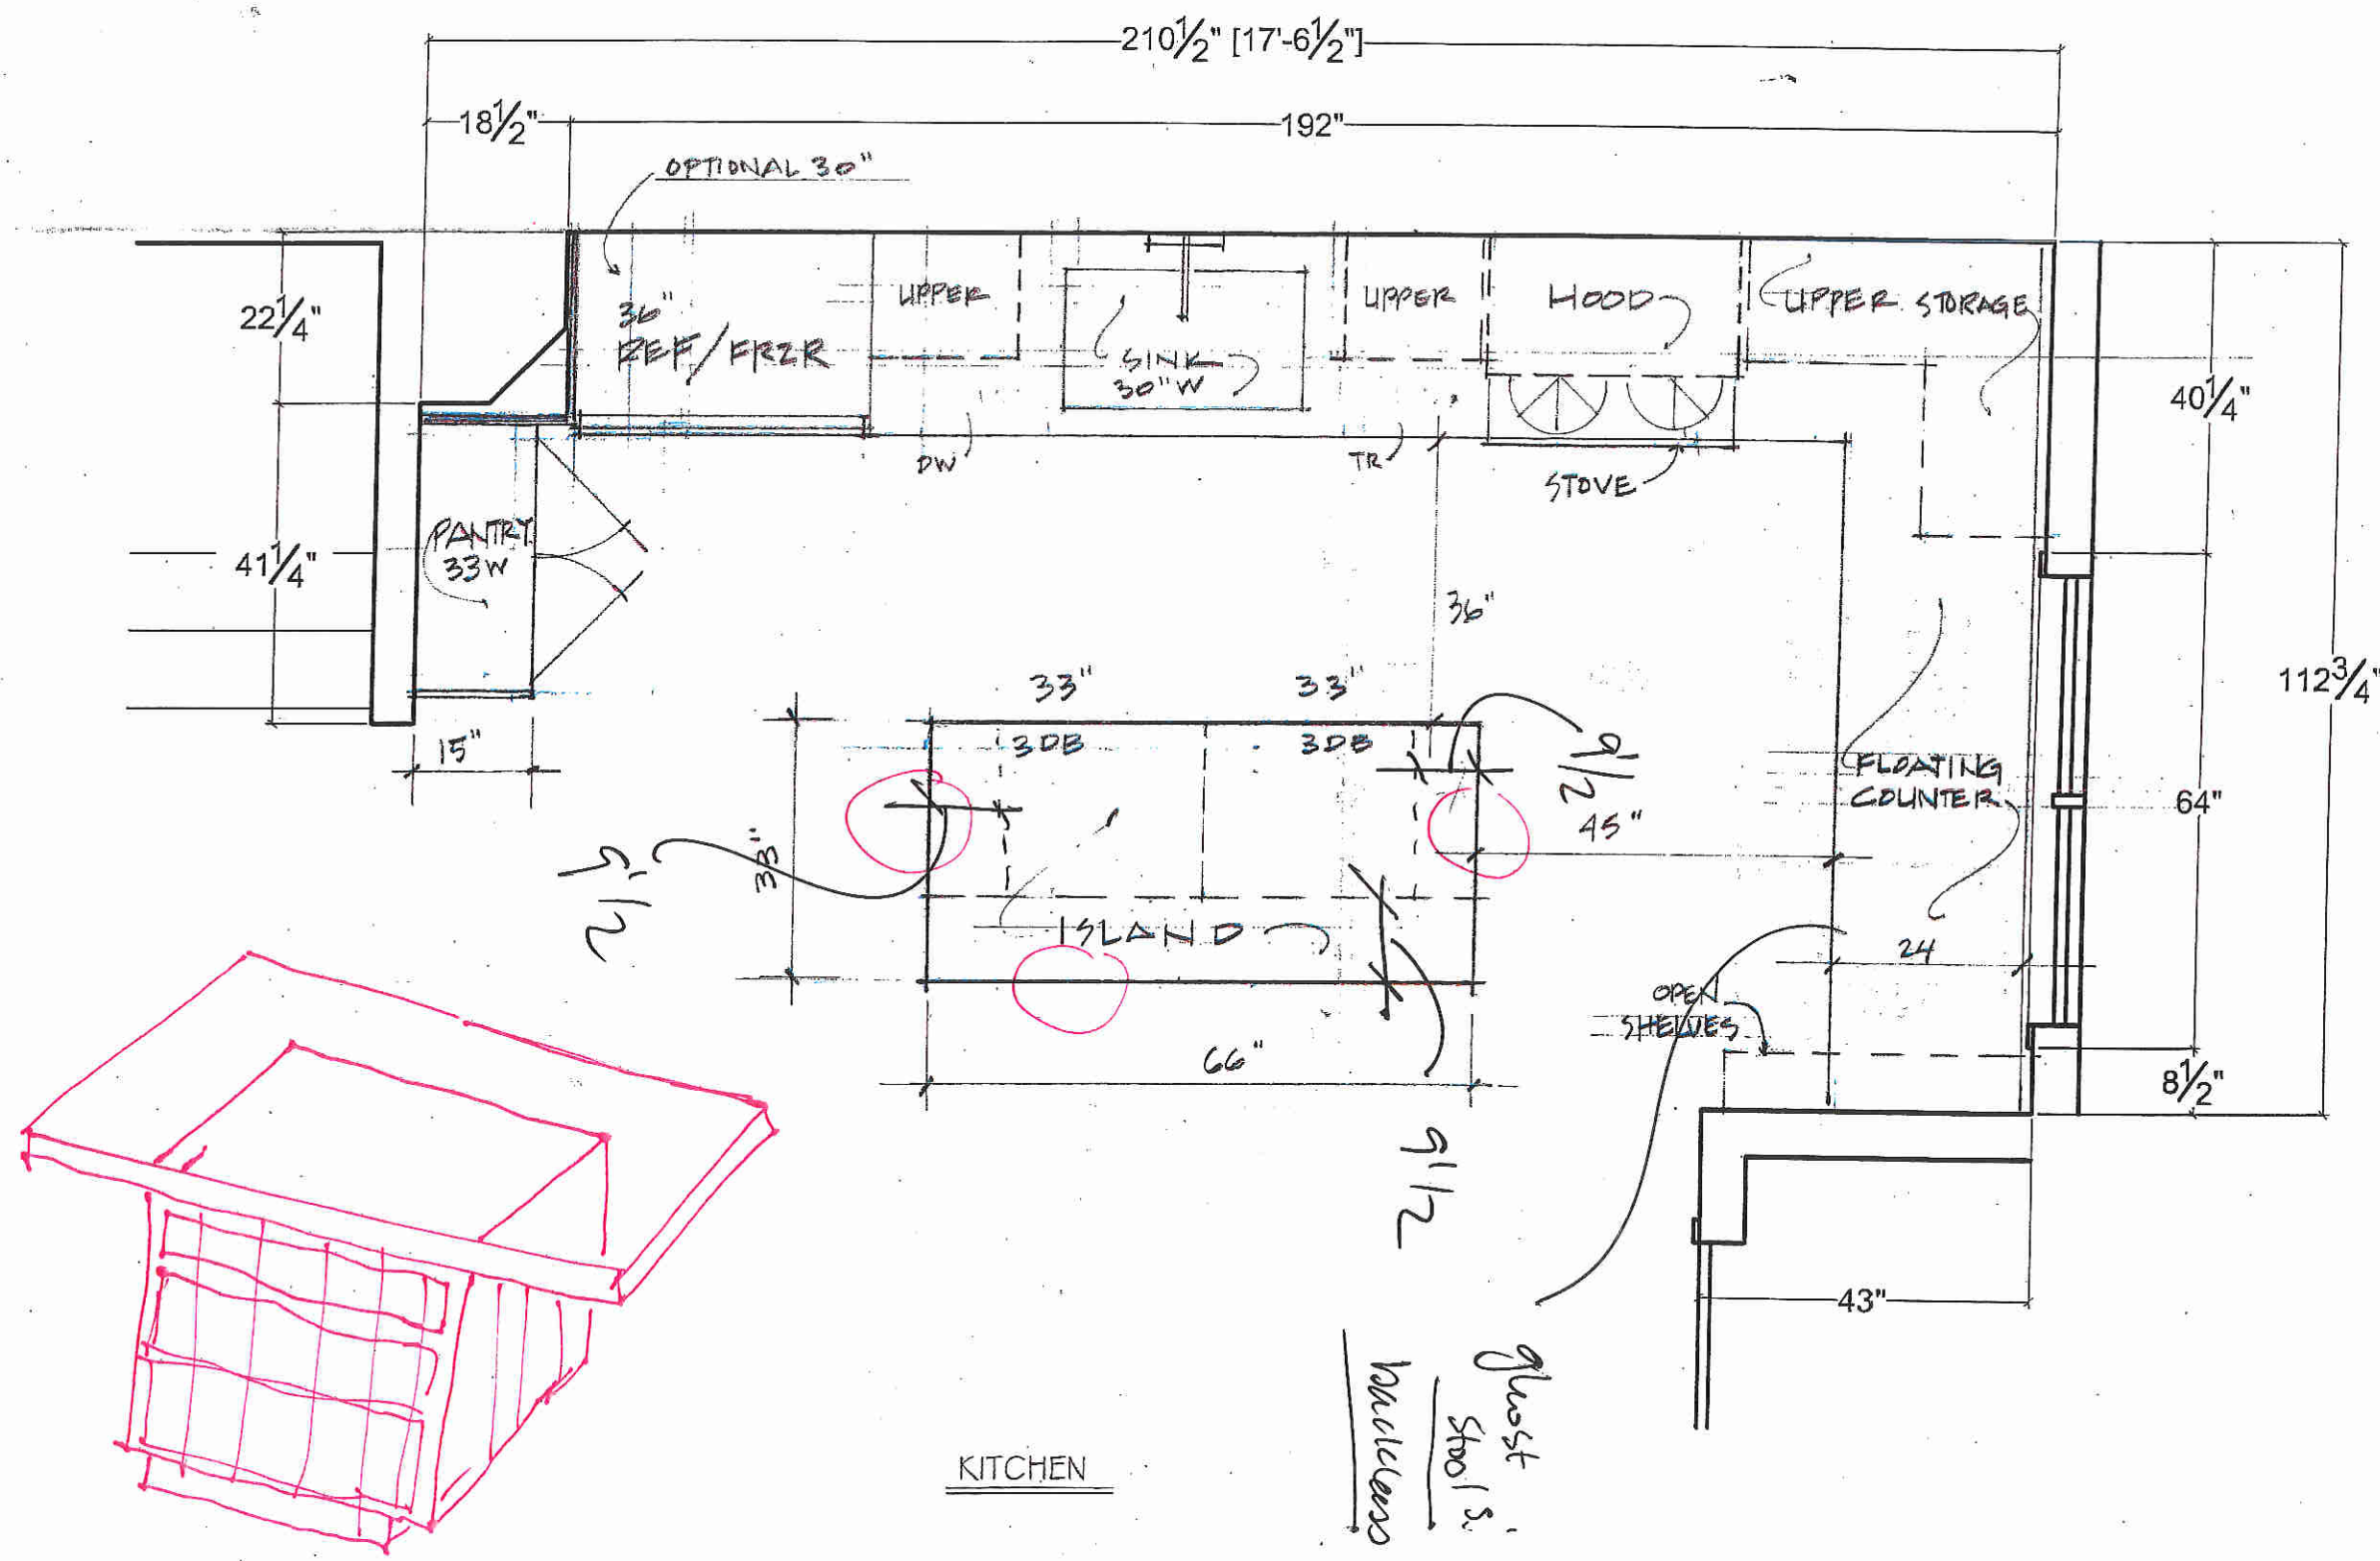 210 1/2" [17'-6 1/2"]
18 1/2"
192"
OPTIONAL 30"
22 1/4"
36"
REF/FRZR
UPPER
SINK
30"W
UPPER
HOOD
UPPER STORAGE
40 1/4"
DW
TR
STOVE
41 1/4"
PANTRY
33W
36"
112 3/4"
33"
33"
3DB
3DB
15"
9 1/2
45"
FLOATING
COUNTER
64"
33"
9 1/2
ISLAND
24
OPEN
SHELVES
66"
8 1/2"
9 1/2
43"
ghost
stools
backless
KITCHEN